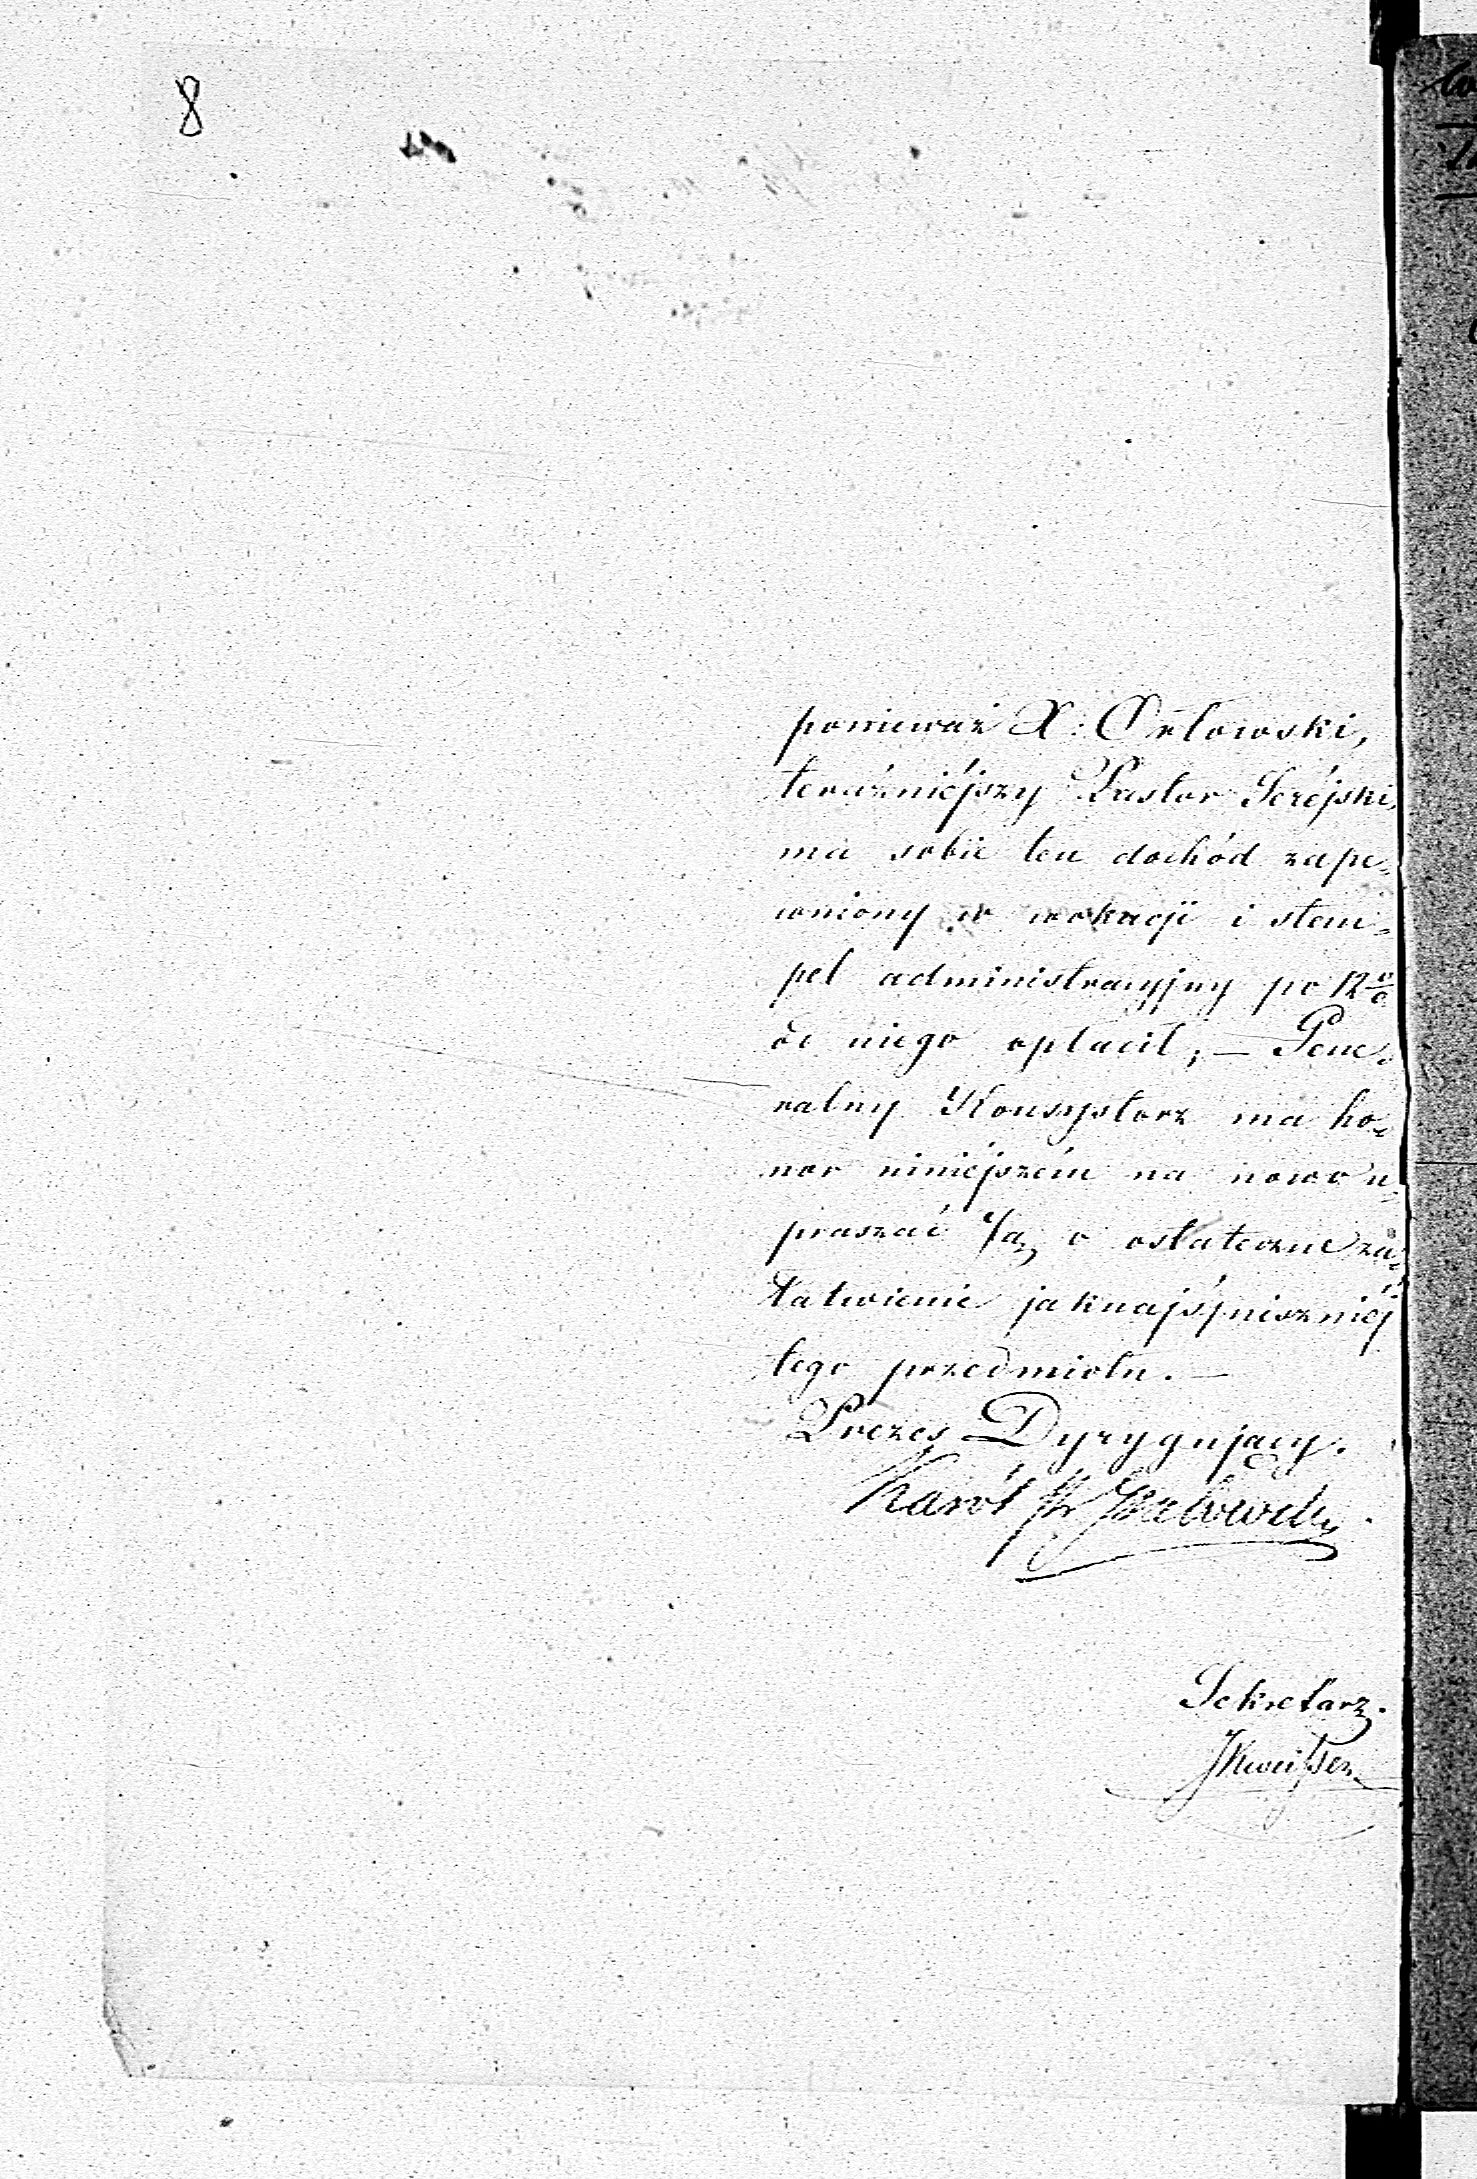 8
ponieważ X: Orłowski,
teraźniéjszy Pastor Seréjski,
ma sobie ten dochód zape„
wniony w wokacji i stem„
pel administracyjny po 12 %
od niego opłacił, — Gene„
ralny Konsystorz ma ho„
nor niniéjszém na nowo u„
praszać o ostateczne za„
łatwienie jaknajśpieszniéj
tego przedmiotu. —
Prezes Dyrygujący.
Karól
Sekretarz.